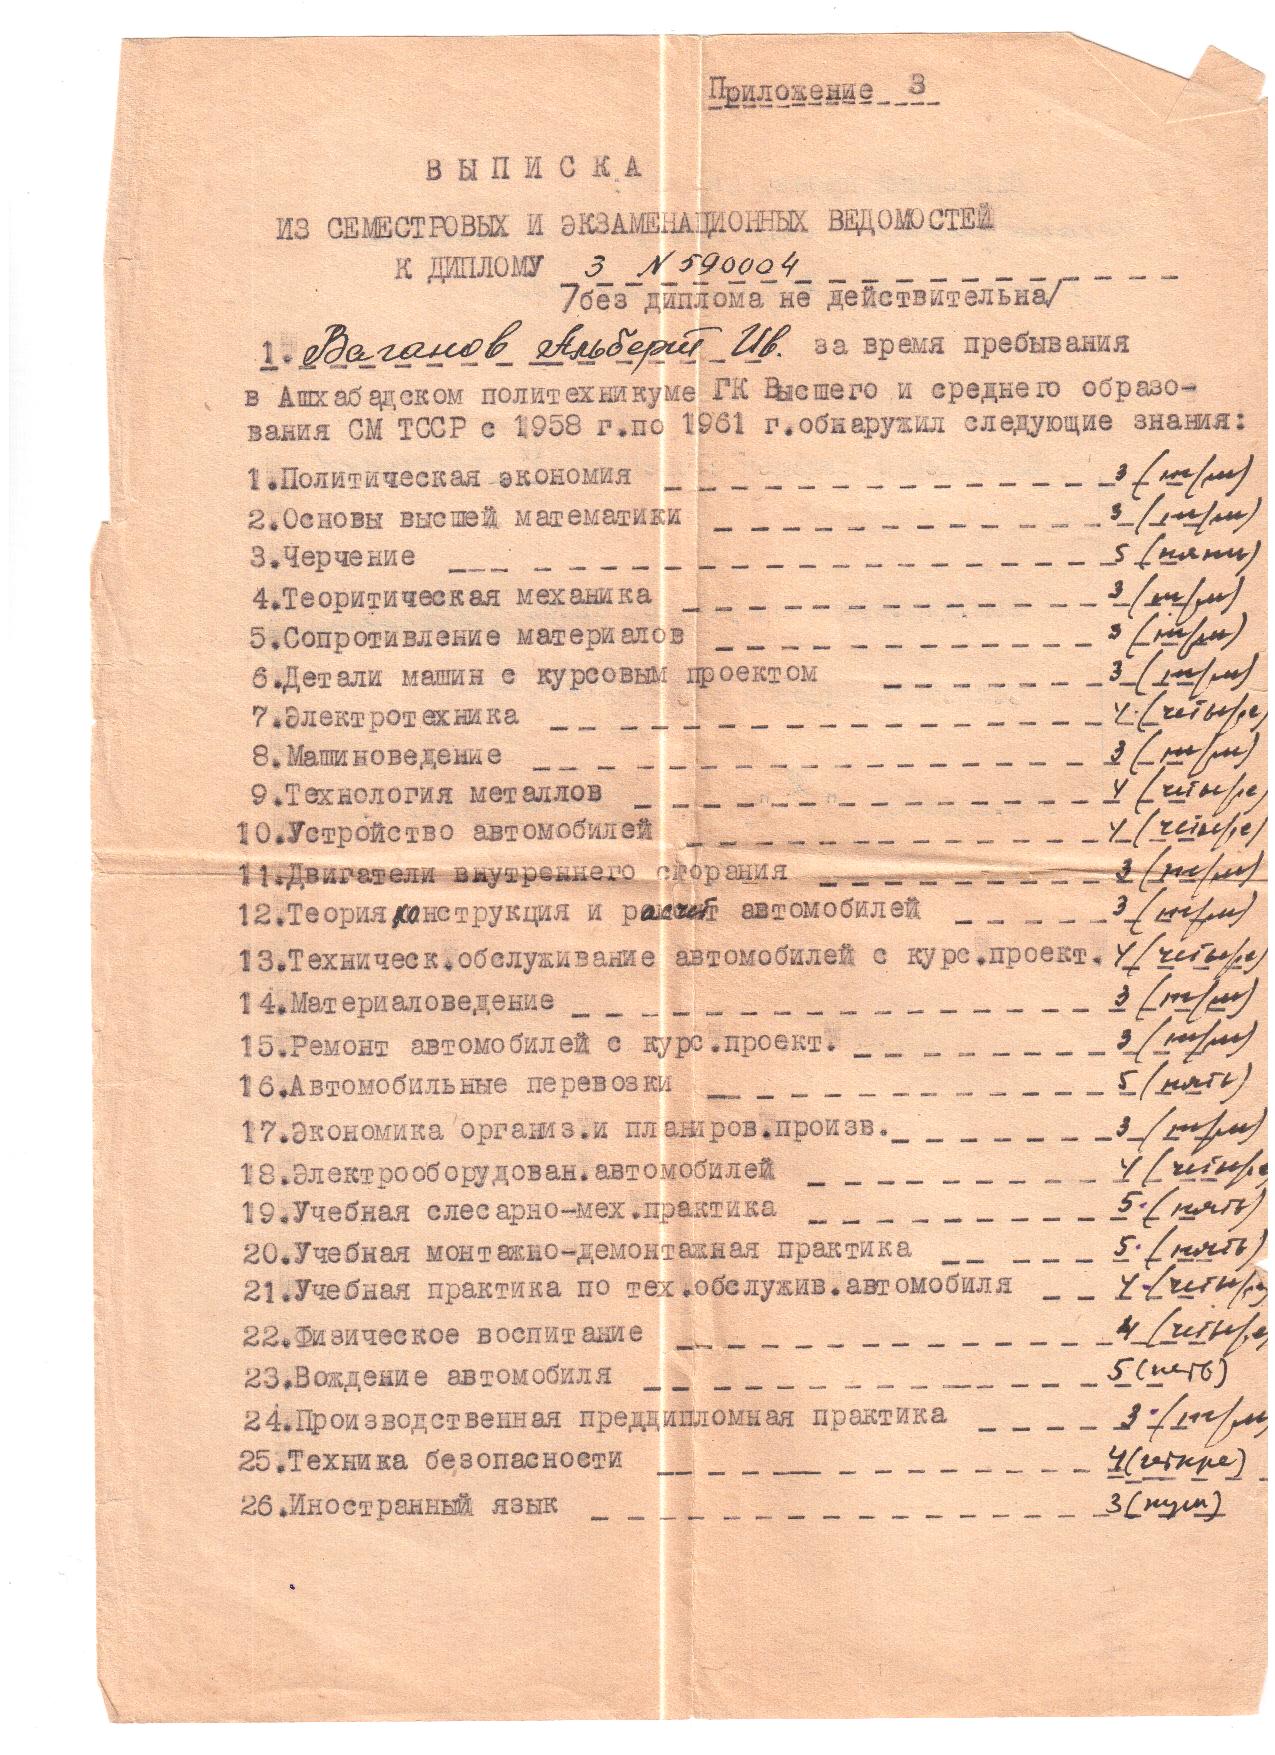 Приложение 3
ВЫПИСКА
ИЗ СЕМЕСТРОВЫХ И ЭКЗАМЕНАЦИОННЫХ ВЕДОМОСТЕЙ
К ДИПЛОМУ З N 590004
/без диплома не действительна/
1. Ваганов Альберт Ив. за время пребывания
в Ашхабадском политехникуме ГК Высшего и среднего образо-
вания СМ ТССР с 1958 г.по 1961 г.обнаружил следующие знания:
1.Политическая экономия 3 (три)
2.Основы высшей математики 3 (три)
3.Черчение 5 (пять)
4.Теоритическая механика 3 (три)
5.Сопротивление материалов 3 (три)
6.Детали машин с курсовым проектом 3 (три)
7.Электротехника 4 (четыре)
8.Машиноведение 3 (три)
9.Технология металлов 4 (четыре)
10.Устройство автомобилей 4 (четыре)
11.Двигатели внутреннего сгорания 3 (три)
12.Теория конструкция и расчет автомобилей 3 (три)
13.Техническ.обслуживание автомобилей с курс.проект. 4 (четыре)
14.Материаловедение 3 (три)
15.Ремонт автомобилей с курс.проект. 3 (три)
16.Автомобильные перевозки 5 (пять)
17.Экономика организ.и планиров.произв. 3 (три)
18.Электрооборудован.автомобилей 4 (четыре)
19.Учебная слесарно-мех.практика 5 (пять)
20.Учебная монтажно-демонтажная практика 5 (пять)
21.Учебная практика по тех.обслужив.автомобиля 4 (четыре)
22.Физическое воспитание 4 (четыре)
23.Вождение автомобиля 5 (пять)
24.Производственная преддипломная практика 3 (три)
25.Техника безопасности 4 (четыре)
26.Иностранный язык 3